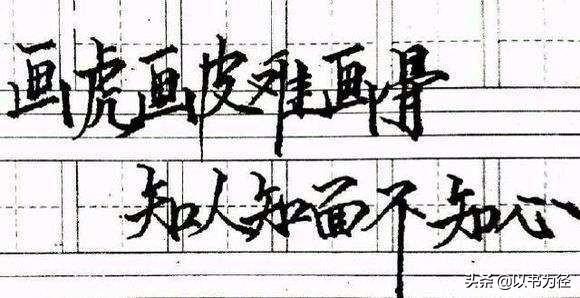 画虎画皮难画骨
知人知面不知心
头条@以书为径